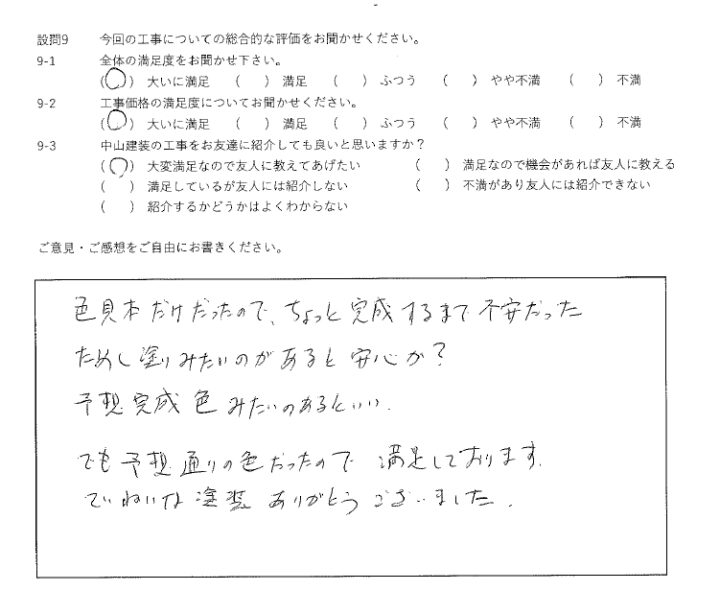 設問9 今回の工事についての総合的な評価をお聞かせください。
9-1 全体の満足度をお聞かせ下さい。
(○) 大いに満足 ( ) 満足 ( ) ふつう ( ) やや不満 ( ) 不満
9-2 工事価格の満足度についてお聞かせください。
(○) 大いに満足 ( ) 満足 ( ) ふつう ( ) やや不満 ( ) 不満
9-3 中山建装の工事をお友達に紹介しても良いと思いますか？
(○) 大変満足なので友人に教えてあげたい ( ) 満足なので機会があれば友人に教える
( ) 満足しているが友人には紹介しない ( ) 不満があり友人には紹介できない
( ) 紹介するかどうかはよくわからない
ご意見・ご感想をご自由にお書きください。
色見本だけだったので、ちょっと完成するまで不安だった
ためし塗りみたいのがあると安心か？
予想完成色みたいのあるといい.
でも予想通りの色だったので満足しております.
ていねいな塗装ありがとうございました.